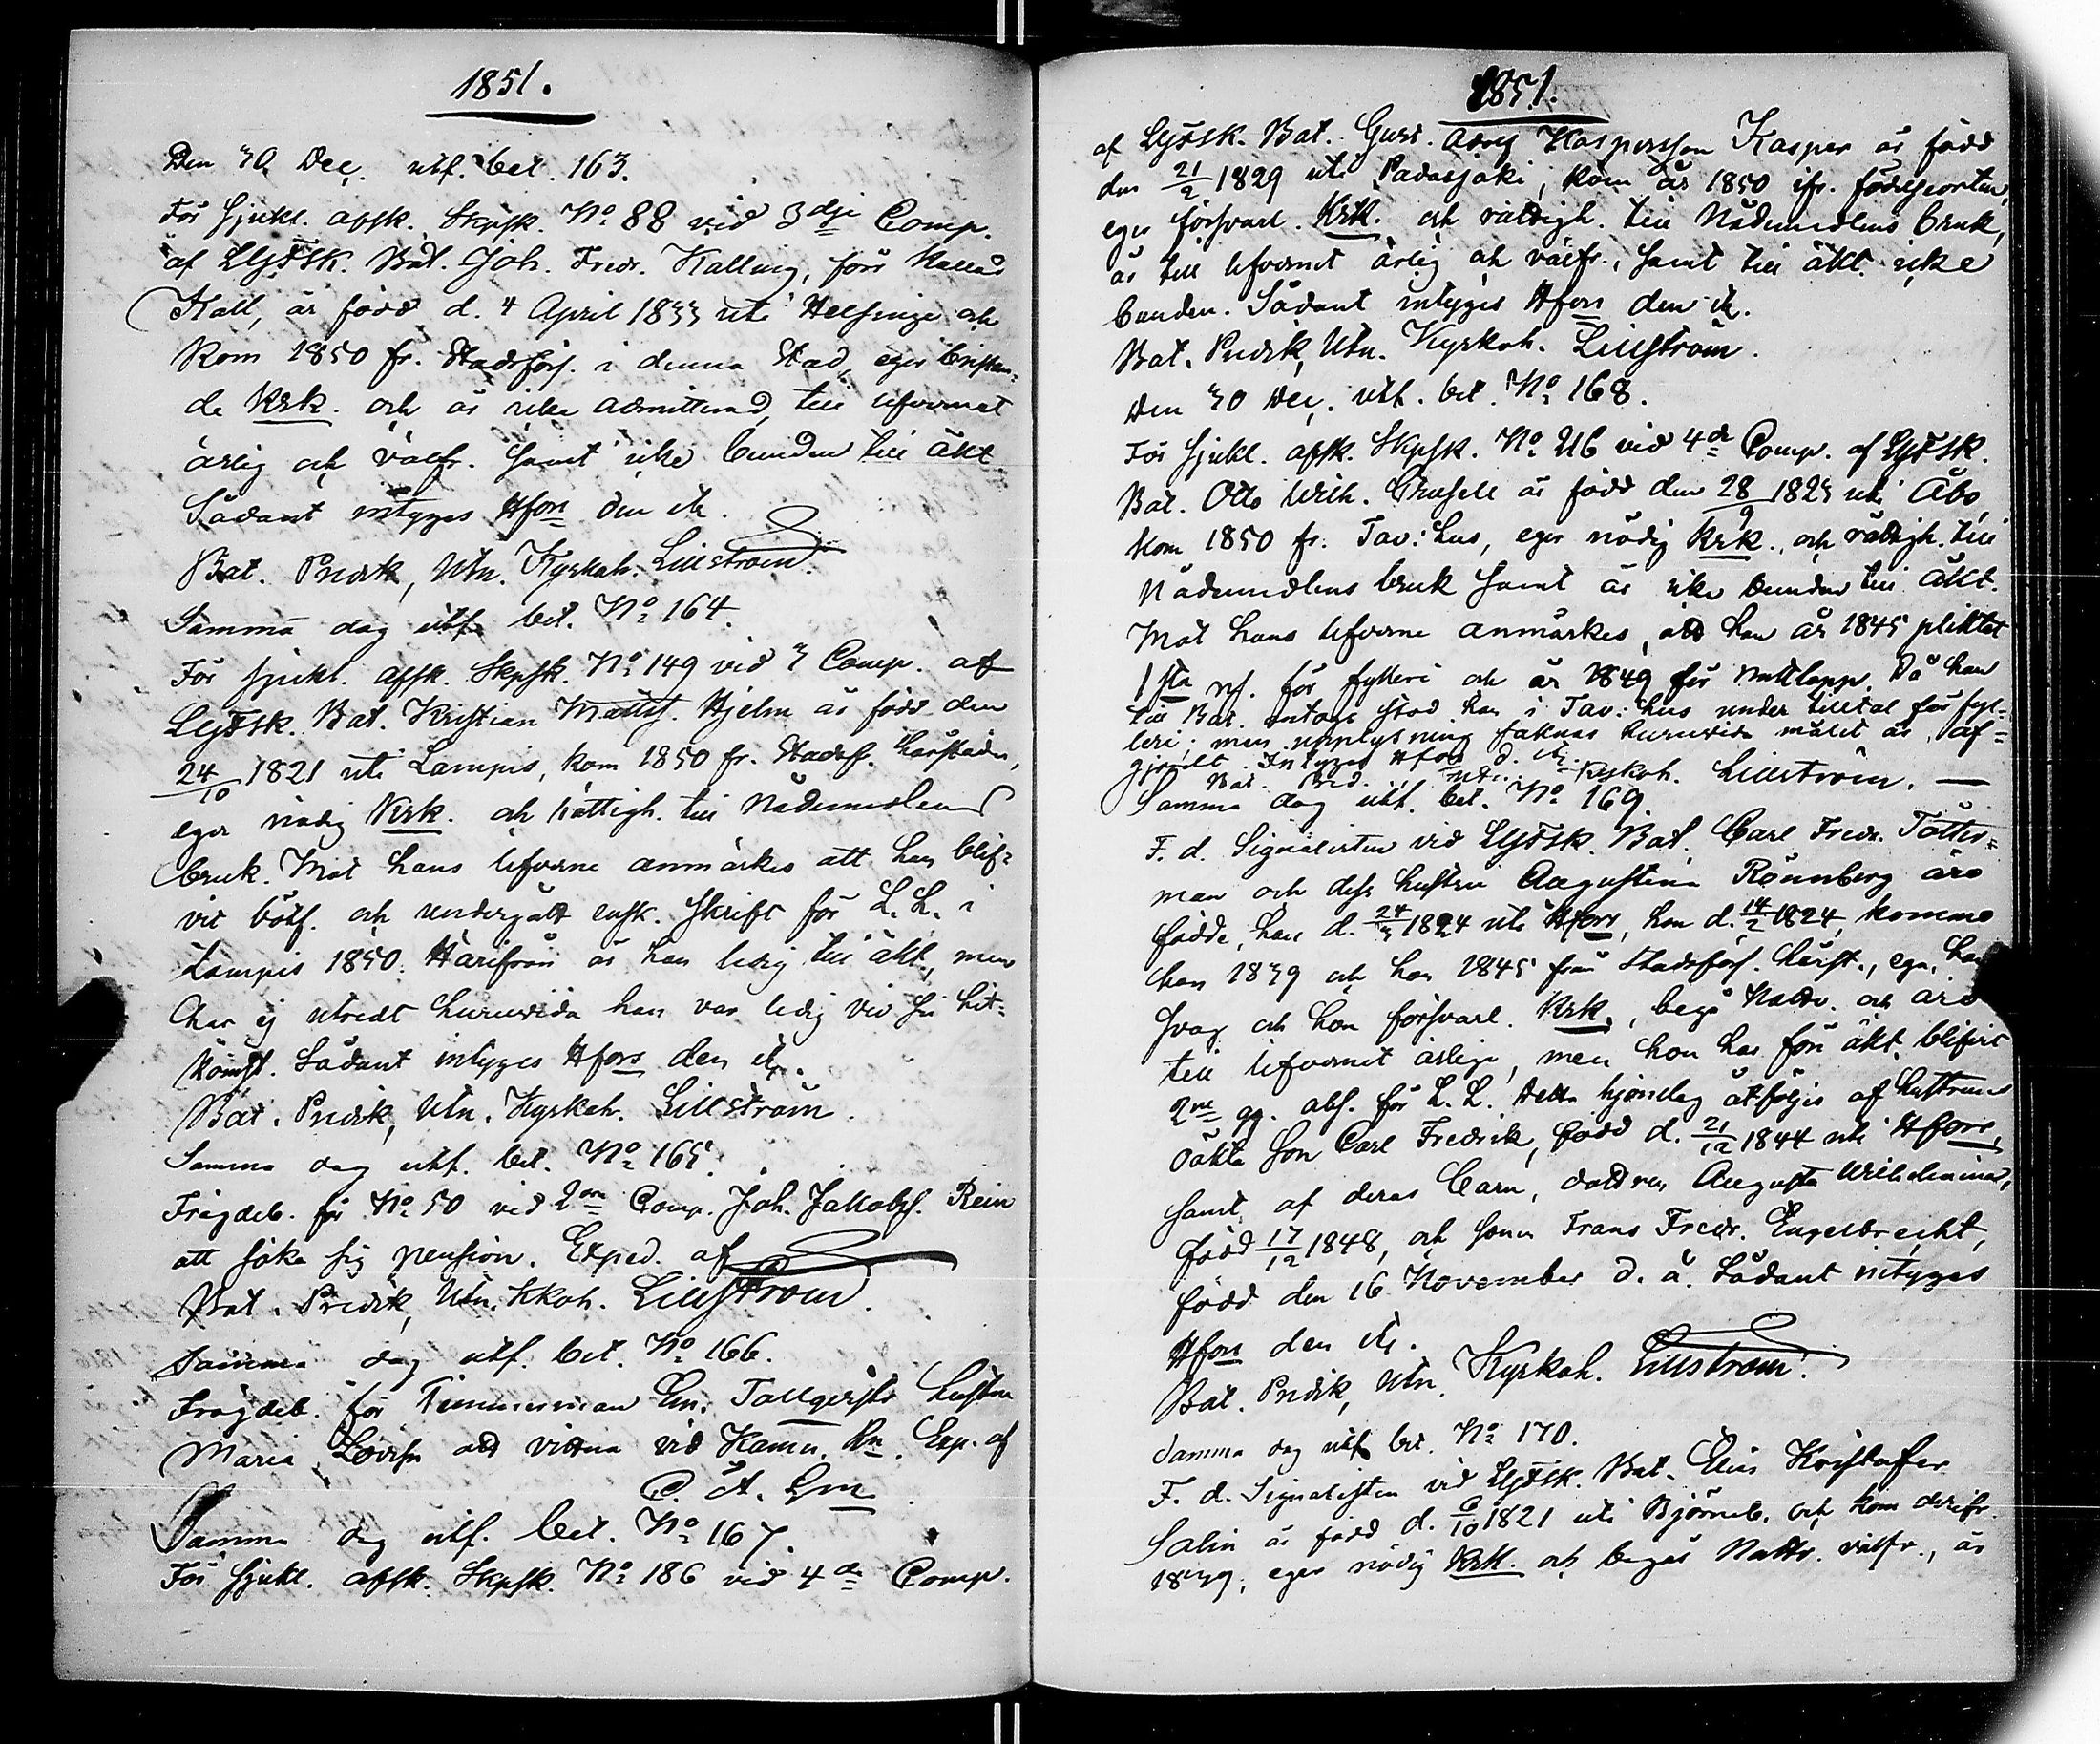 1851.
Den 30 Dec. utf. bet. 163.
För sjukl. afsk. Skpsk. No 88 vid 3dje Comp.
af LgFSk. Bat. Joh. Fredr. Kalling, förr kallad
Kall, är född d. 4 April 1833 uti Helsinge och
kom 1850 fr. Stadsförs. i denna Stad, eger bristan-
de Krk. och är icke admitterad, till lefvernet
ärlig och välfr. samt icke bunden till äkt.
Sådant intygas Hfors den it.
Bat. Predik, Utn. Kyrkoh. Lillström.
Samma dag utf. bet. No 164.
För sjukl. afsk. Skpsk. No 149 vid 3 Comp. af
LgFSk. Bat. Kristian Mattss. Hjelm är född den
24/10 1821 uti Lampis, kom 1850 fr. Stadsf. härstädes,
eger nödig Krk. och rättigh. till Nådemedlens
bruk. Mot hans lefverne anmärkes att han blif-
vit bötf. och undergått ensk. skrift för L. L. i
Lampis 1850. Härifrån är han ledig till äkt, men
har ej utredt huruvida han var ledig vid sin hit-
komst. Sådant intygas Hfors den it.
Bat. Predik, Utn. Kyrkoh. Lillström.
Samma dag utf. bet. No 165.
Frägdeb. för No 50 vid 2dra Comp. Joh. Jakobss. Rein
att söka sig pension. Exped. af
Bat. Predik, Utn. Kkoh. Lillström.
Samma dag utf. bet. No 166.
Frägdeb. för Timmerman Em. Tallqvists hustru
Maria Lovisa att vittna vid Kämn. Rn. Exp. af
C. A. Gm
Samma dag utf. bet. No 167.
För sjukl. afsk. Skpsk. No 186 vid 4de Comp.
1851.
af LgFSk. Bat. Gust. Adolf Kaspersson Kasper är född
den 21/2 1829 uti Padasjoki, kom år 1850 ifr. födelseorten,
eger försvarl. Krk. och rättigh. till Nådemedlens bruk,
är till lefvernet ärlig och välfr., samt till äkt. icke
bunden. Sådant intygas Hfors den it.
Bat. Predik, Utn. Kyrkoh. Lillström.
Den 30 Dec. utf. bet. No 168.
För sjukl. afsk. Skpsk. No 216 vid 4de Comp. af LgFSk.
Bat. Otto Wilh. Crusell är född den 28/9 1823 uti Åbo,
kom 1850 fr. Tav:hus, eger nödig Krk., och rättigh. till
Nådemedlens bruk samt är icke bunden till äkt.
Mot hans lefverne anmärkes, att han år 1845 pliktat
1sta rs. för fylleri och år 1849 för nattlopp. Då han
till Bat. antogs stod han i Tav:hus under tilltal för fyl-
leri; men upplysning saknas huruvida målet är af-
gjordt. Intygas Hfors d. it.
Bat. Pred. Utn. Krkoh. Lillström. —
Samma dag utf. bet. No 169.
F. d. Signalisten vid LgFSk. Bat. Carl Fredr. Totter-
man och dess hustru Augustina Rönnberg äro
födde, han d. 24/3 1824 uti Hfors, hon d. 14/2 1824, komme
han 1839 och hon 1845 från Stadsförs. härst., ega, han
svag och hon försvarl. Krk., begå Nattv. och äro
till lefvernet ärlige, men hon har förr äkt. blifvit
2ne gg. abs. för L. L. Detta hjonelag åtföljes af hustruns
oäkta son Carl Fredrik, född d. 21/12 1844 uti Hfors,
samt af deras barn, dottren Augusta Wilhelmina,
född 17/12 1848, och sonen Frans Fredr. Engelbrecht,
född den 16 November d. å. Sådant intygas
Hfors den it.
Bat. Predik, Utn. Kyrkoh. Lillström.
Samma dag utf. bet. No 170.
F. d. Signalisten vid LgFSk. Bat. Elias Kristofer
Salin är född d. 6/10 1821 uti Björneb. och kom derifr.
1839, eger nödig Krk. och begår Nattv. välfr., är